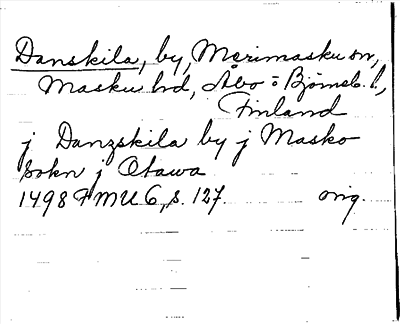 Danskila, by, Merimasku sn,
Masku hd, Åbo o Björneb. l.,
Finland
j Danzskila by j Masko
sokn j Otawa
1498 FMU 6, s. 127. orig.